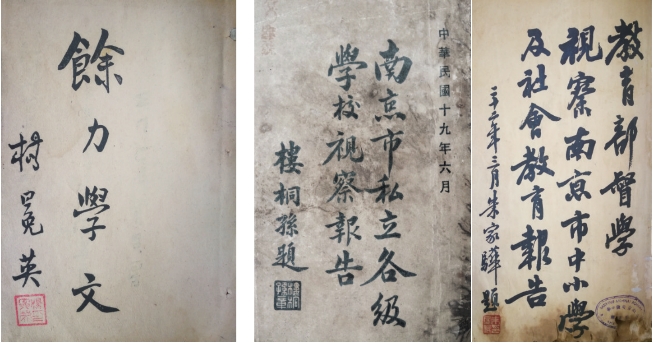 餘力學文
楊晚英
中華民國十九年六月
南京市私立各級
學校視察報告
樓桐孫題
教育部督學
視察南京市中小學
及社會教育報告
二十二年三月朱家驊題